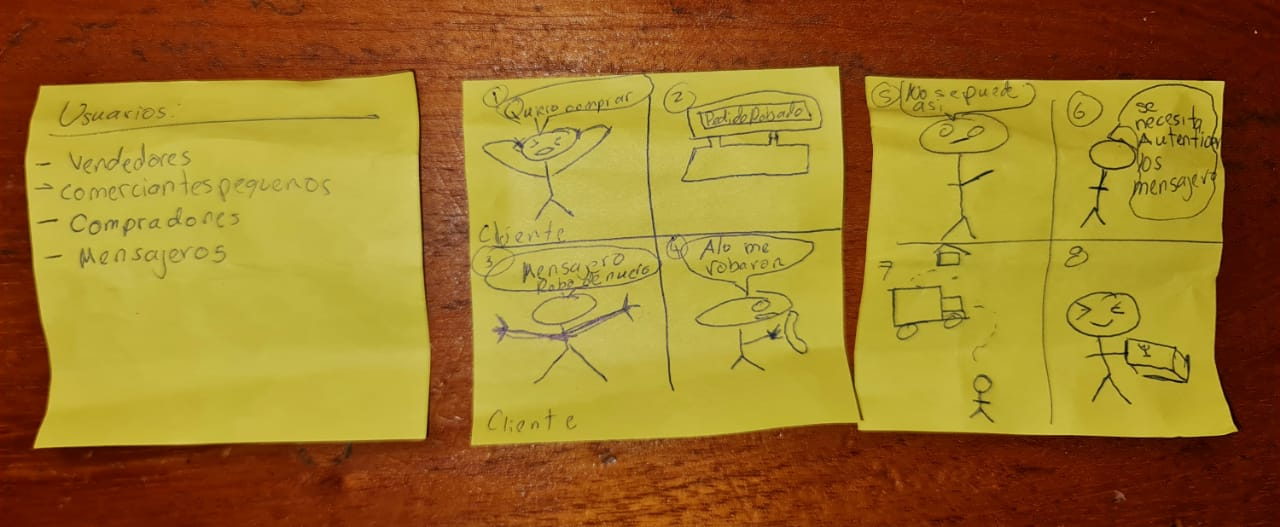 Usuarios:
- Vendedores
-> comerciantes pequeños
- Compradores
- Mensajeros
1
Quiero comprar
Cliente
2
Pedido Robado
3
Mensajero
Robo de nuevo
Cliente
4
Alo me
robaron
5
No se puede
asi
6
se
necesita
Autenticar
los
mensajero
7
8